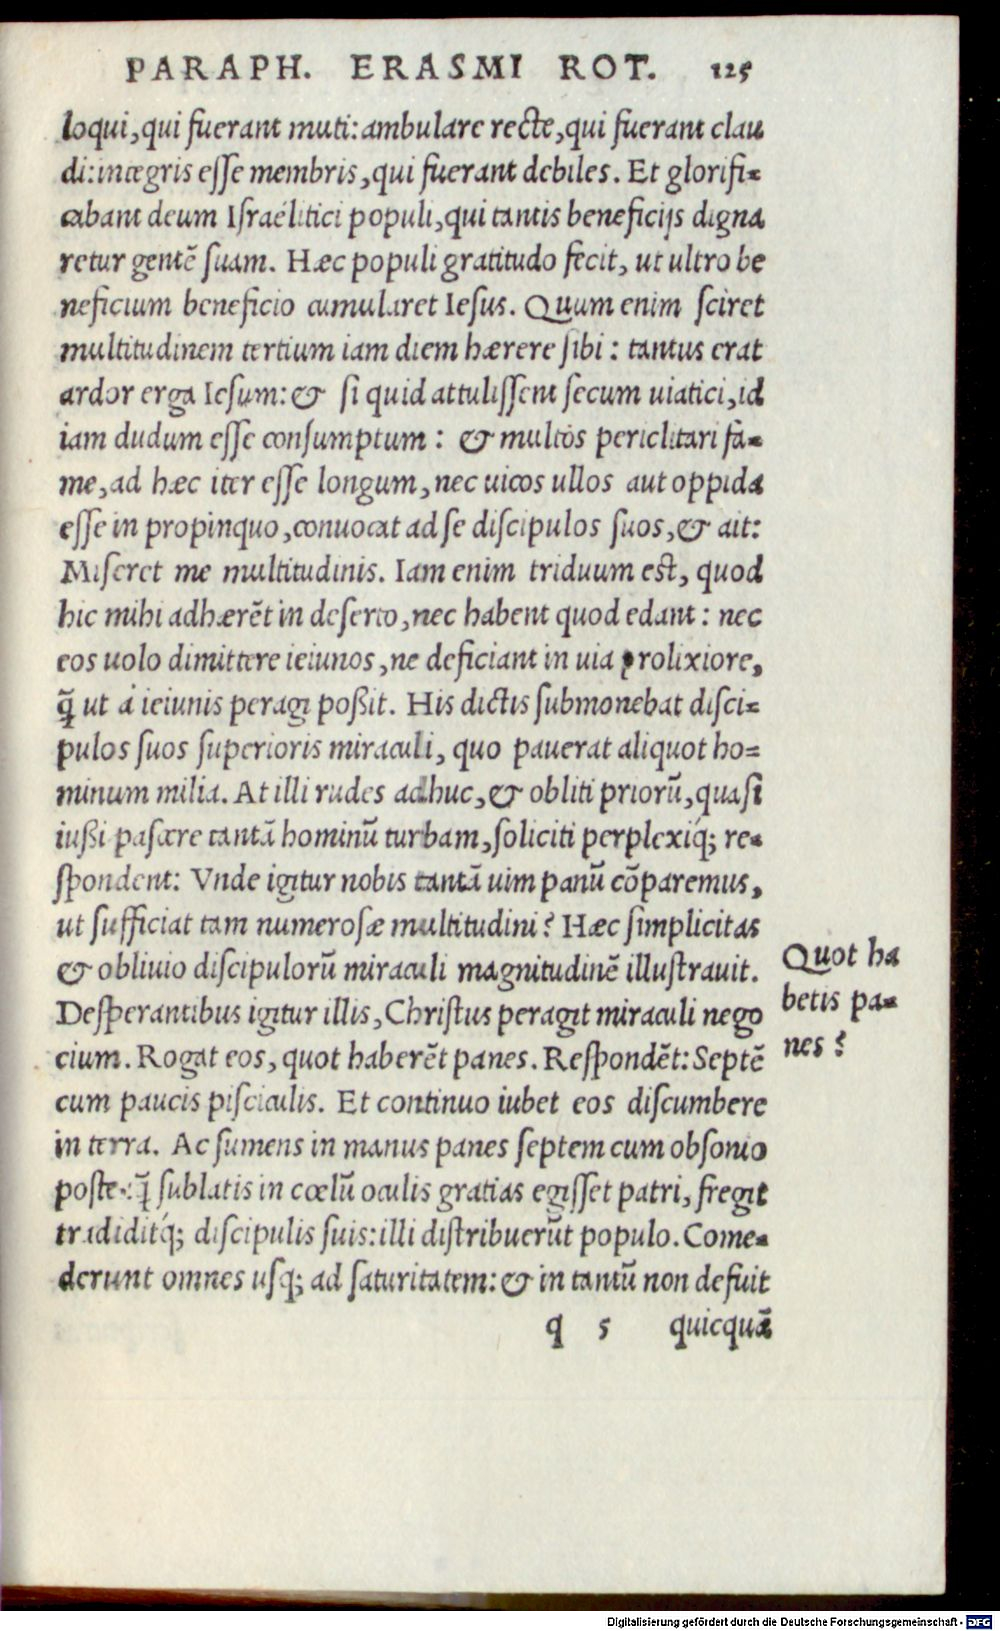 PARAPH. ERASMI ROT. 125
loqui, qui fuerant muti: ambulare recte, qui fuerant clau
di: integris esse membris, qui fuerant debiles. Et glorifi-
cabant deum Israélitici populi, qui tantis beneficijs digna
retur gentē suam. Hæc populi gratitudo fecit, ut ultro be
neficium beneficio cumularet Iesus. Quum enim sciret
multitudinem tertium iam diem hærere sibi: tantus erat
ardor erga Iesum: & si quid attulissent secum uiatici, id
iam dudum esse consumptum: & multos periclitari fa-
me, ad hæc iter esse longum, nec uicos ullos aut oppida
esse in propinquo, conuocat ad se discipulos suos, & ait:
Miseret me multitudinis. Iam enim triduum est, quod
hic mihi adhærēt in deserto, nec habent quod edant: nec
eos uolo dimittere ieiunos, ne deficiant in uia prolixiore,
q̄ ut à ieiunis peragi poßit. His dictis submonebat disci-
pulos suos superioris miraculi, quo pauerat aliquot ho-
minum milia. At illi rudes adhuc, & obliti priorū, quasi
iußi pascere tantā hominū turbam, soliciti perplexiq́; re-
spondent: Vnde igitur nobis tantā uim panū cōparemus,
ut sufficiat tam numerosæ multitudini? Hæc simplicitas
& obliuio discipulorū miraculi magnitudinē illustrauit.
Desperantibus igitur illis, Christus peragit miraculi nego
cium. Rogat eos, quot haberēt panes. Respondēt: Septē
cum paucis pisciculis. Et continuo iubet eos discumbere
in terra. Ac sumens in manus panes septem cum obsonio
posteaq̄ sublatis in cœlū oculis gratias egisset patri, fregit
tradiditq́; discipulis suis: illi distribuerūt populo. Come-
derunt omnes usq; ad saturitatem: & in tantū non defuit
q 5 quicquā
Quot ha
betis pa-
nes?
Digitalisierung gefördert durch die Deutsche Forschungsgemeinschaft - DFG